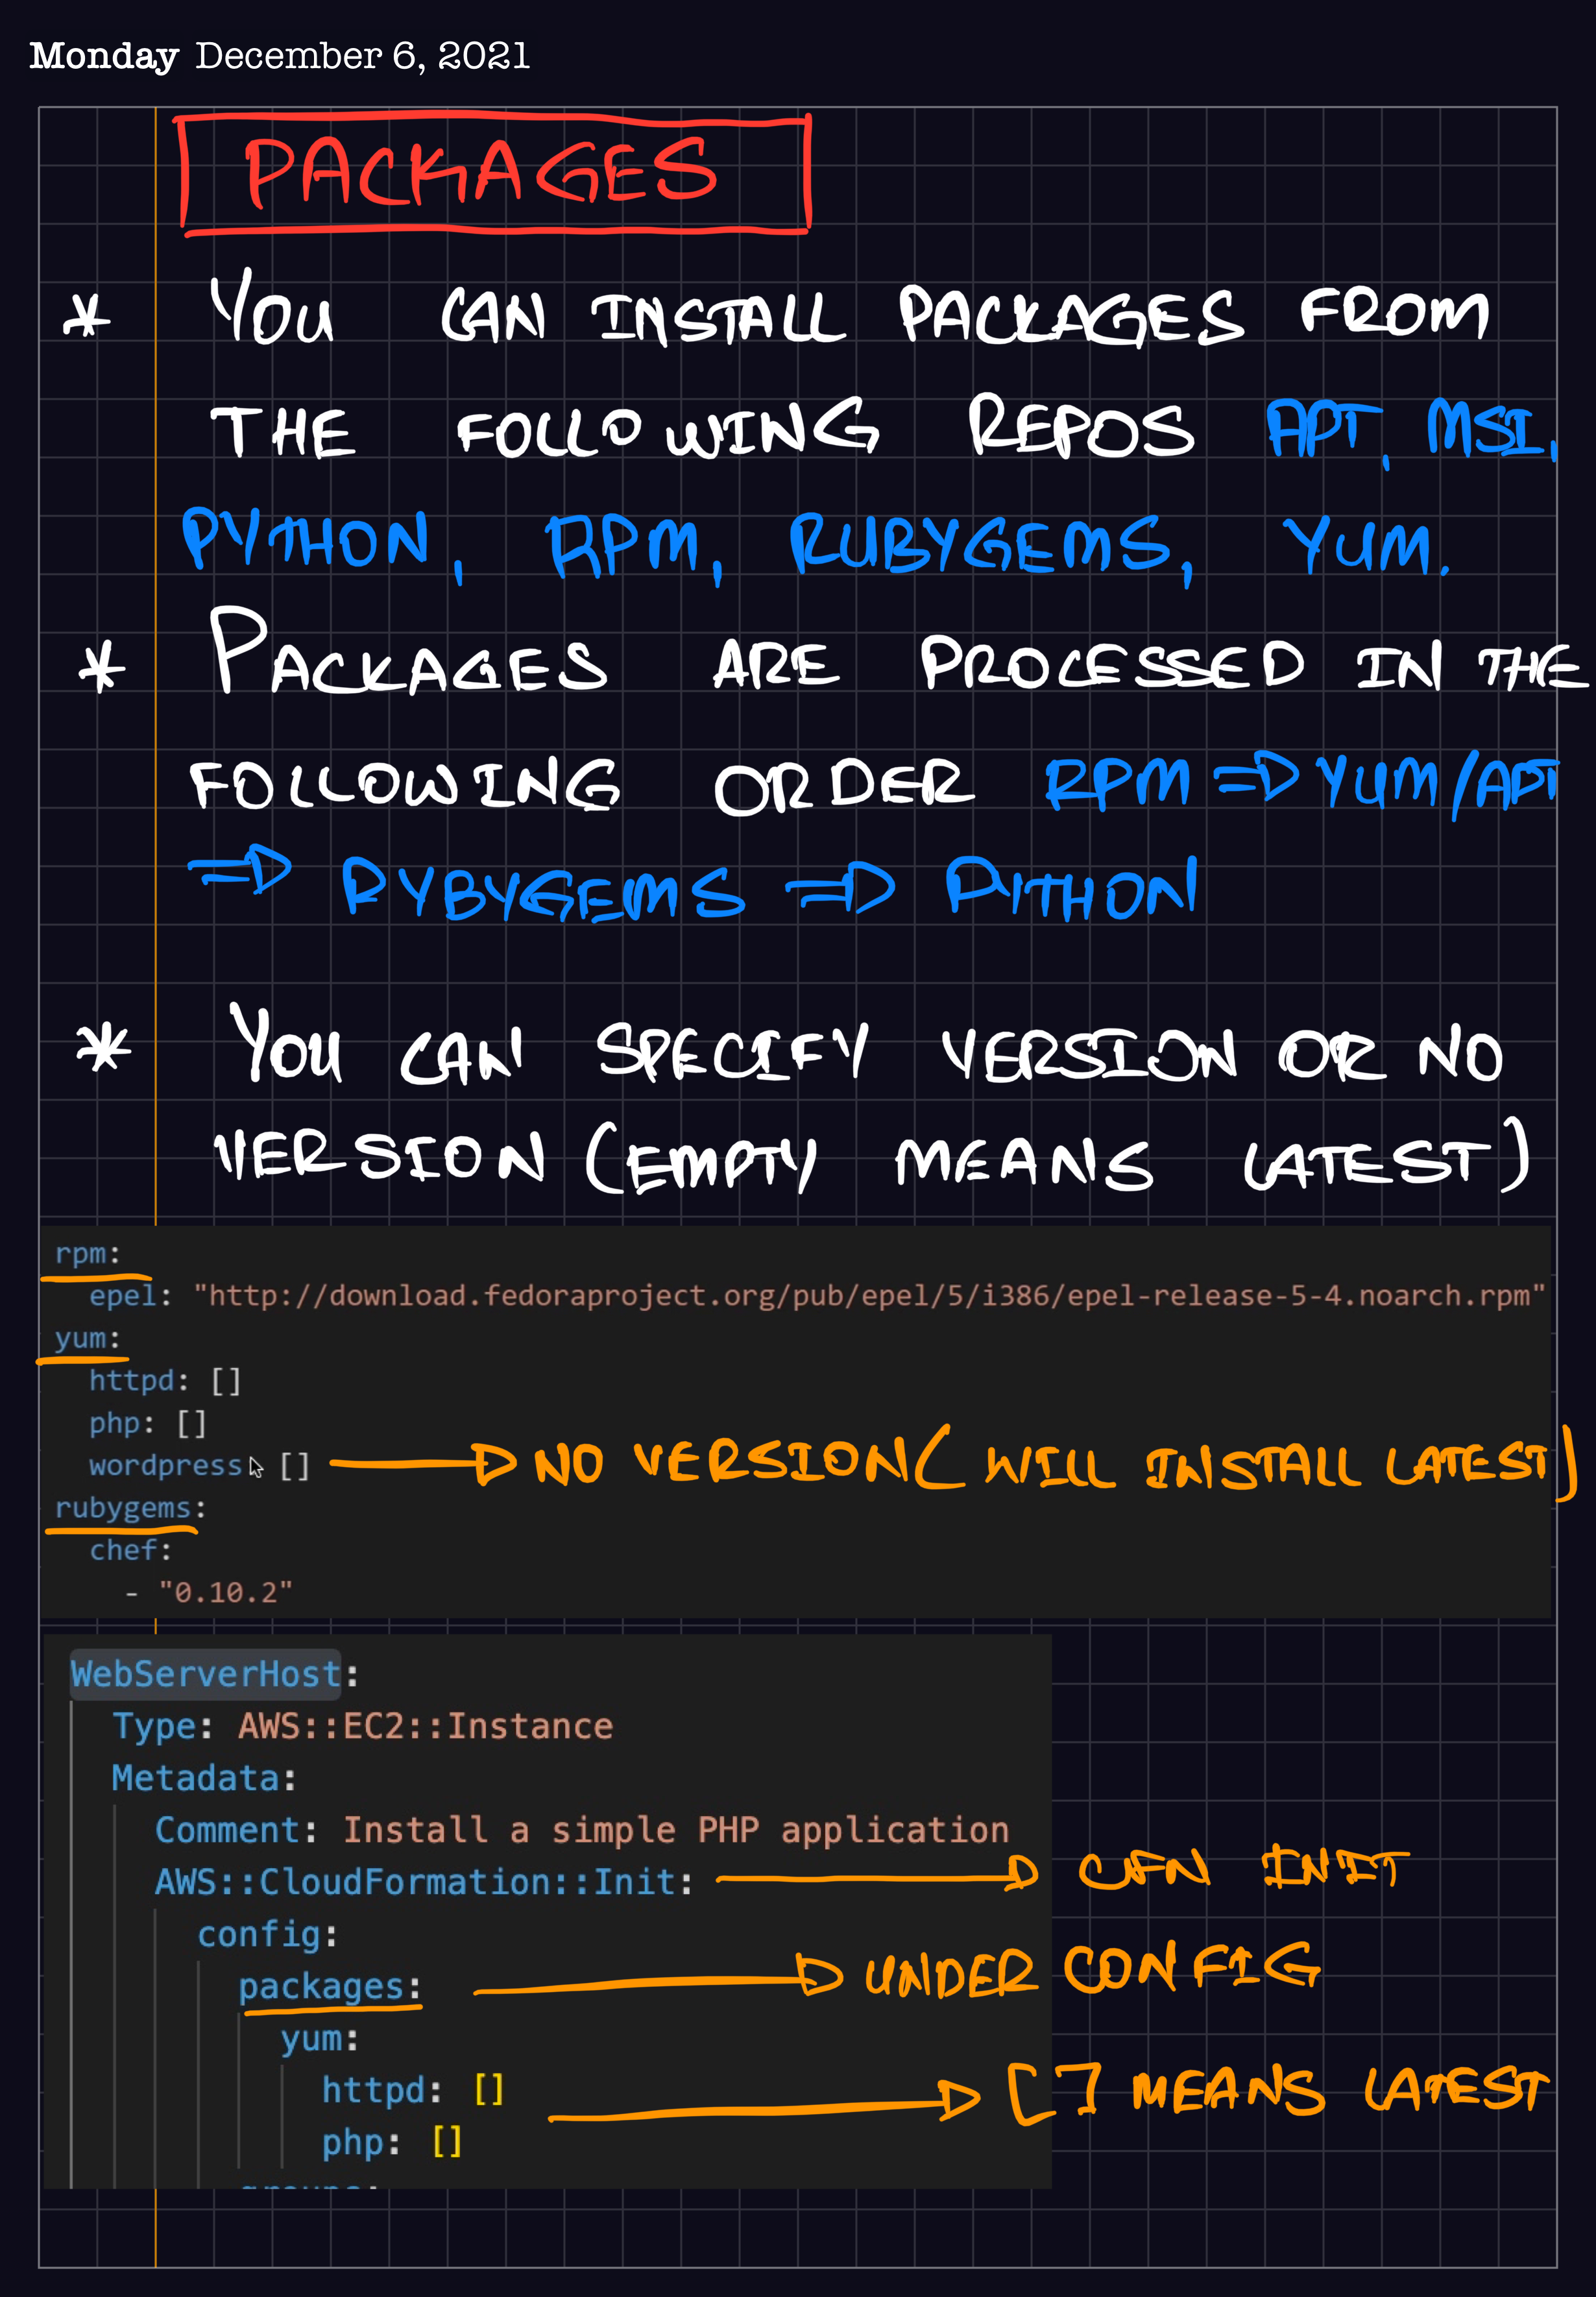 Monday December 6, 2021
PACKAGES
* YOU CAN INSTALL PACKAGES FROM
THE FOLLOWING REPOS APT, MSI,
PYTHON, RPM, RUBYGEMS, YUM.
* PACKAGES ARE PROCESSED IN THE
FOLLOWING ORDER RPM ⇒ YUM/APT
⇒ RYBYGEMS ⇒ PYTHON
* YOU CAN SPECIFY VERSION OR NO
VERSION (EMPTY MEANS LATEST)
rpm:
epel: "http://download.fedoraproject.org/pub/epel/5/i386/epel-release-5-4.noarch.rpm"
yum:
httpd: []
php: []
wordpress [] → NO VERSION (WILL INSTALL LATEST)
rubygems:
chef:
- "0.10.2"
WebServerHost:
Type: AWS::EC2::Instance
Metadata:
Comment: Install a simple PHP application
AWS::CloudFormation::Init: → CFN INIT
config:
packages: → UNDER CONFIG
yum:
httpd: [] → [] MEANS LATEST
php: []